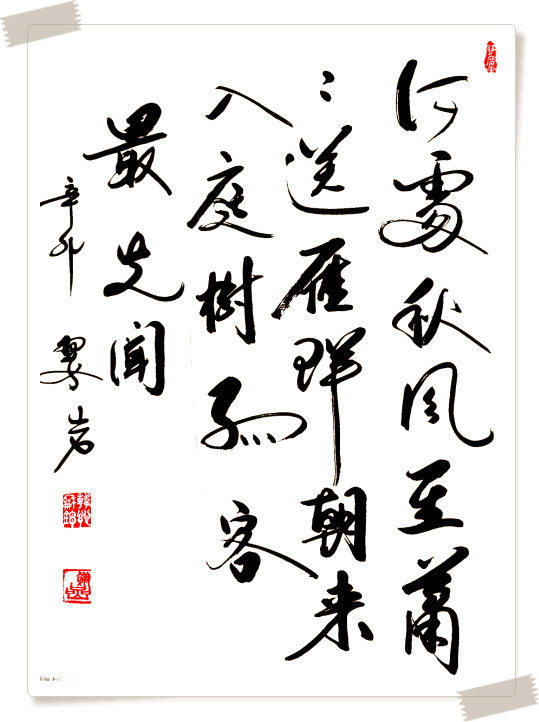 何處秋風至蕭
〻送雁群朝来
入庭樹孤客
最先聞
辛卯 岩